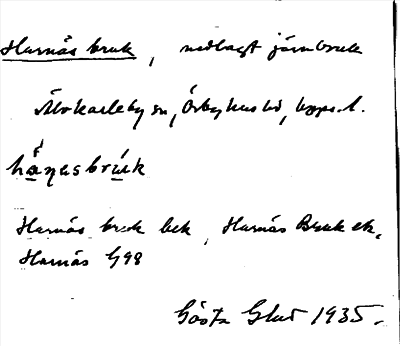 Harnäs bruk, nedlagt järnbruk
Älvkarleby sn, Örbyhus hd, Upps. l.
hå̀ṇasbrúk
Harnäs bruk bek, Harnäs Bruk ek.
Harnäs G98
Gösta 1935.